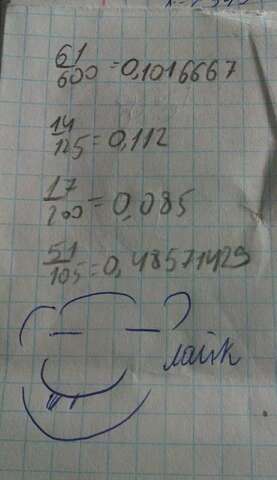 61/600 = 0,1016667
14/125 = 0,112
17/200 = 0,085
51/105 = 0,48571429
лайк